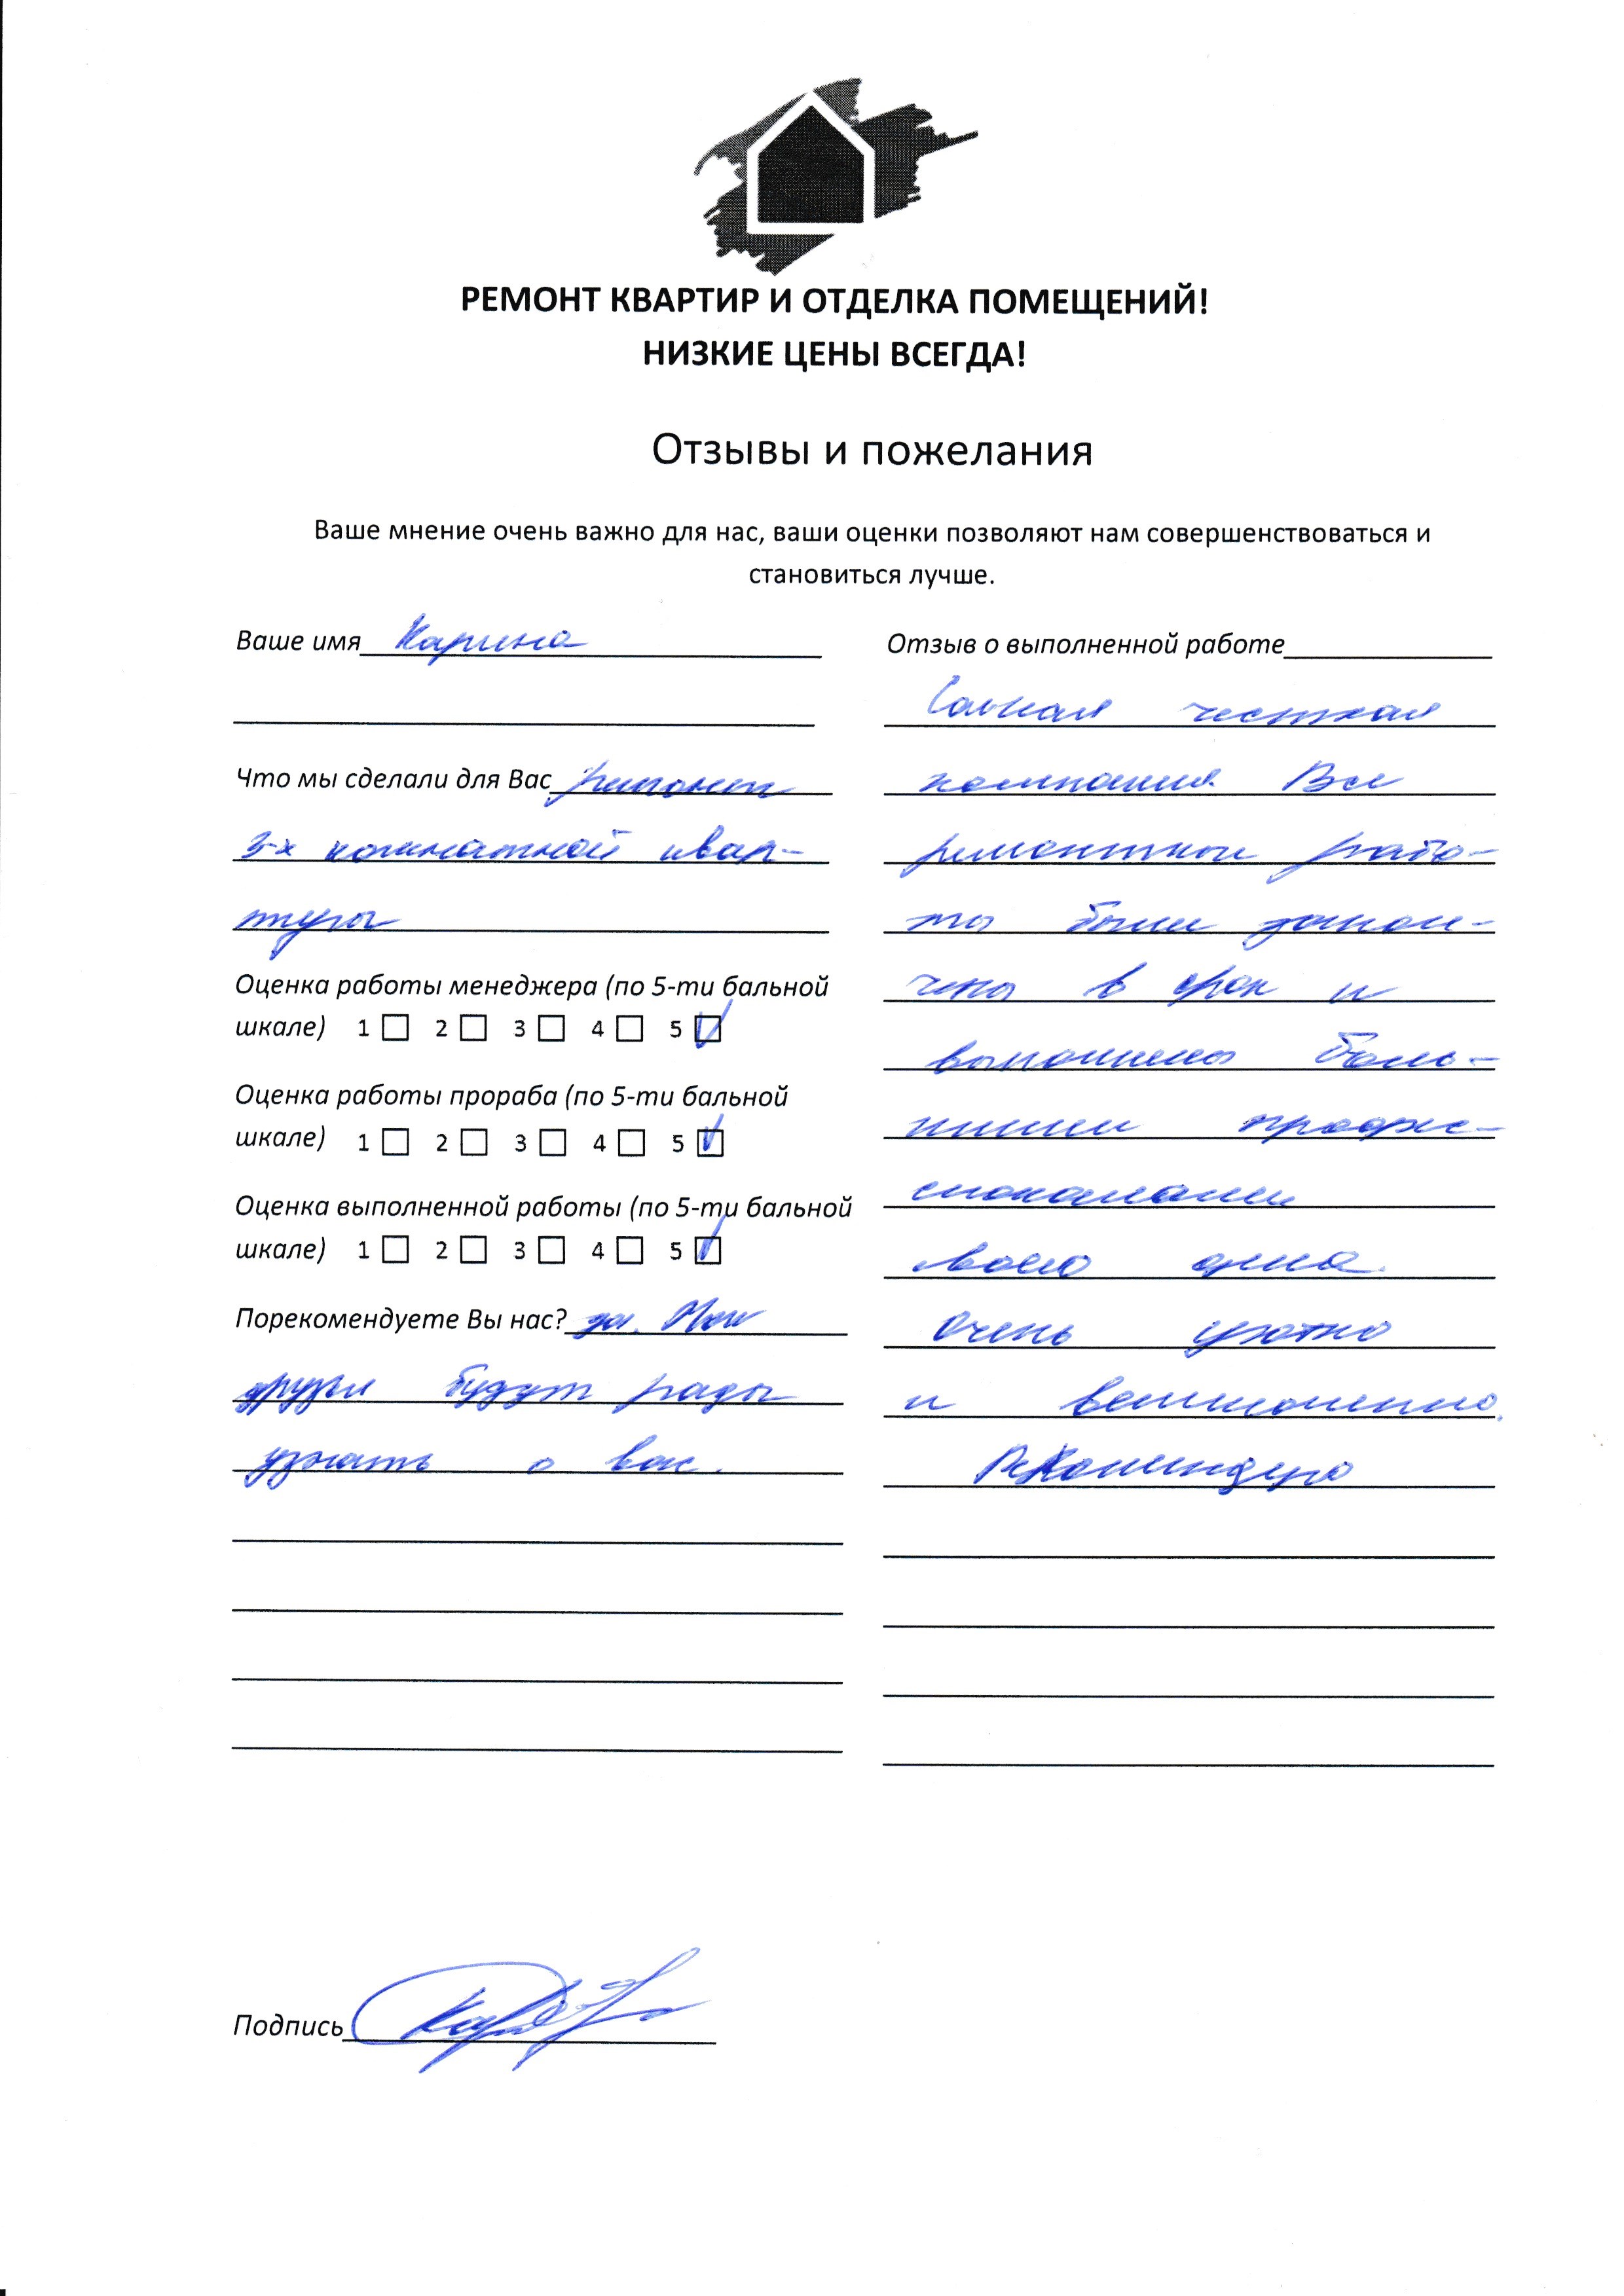 РЕМОНТ КВАРТИР И ОТДЕЛКА ПОМЕЩЕНИЙ!
НИЗКИЕ ЦЕНЫ ВСЕГДА!
Отзывы и пожелания
Ваше мнение очень важно для нас, ваши оценки позволяют нам совершенствоваться и
становиться лучше.
Ваше имя Карина
Что мы сделали для Вас ремонт
3-х комнатной квар-
тиры
Оценка работы менеджера (по 5-ти бальной
шкале) 1 2 3 4 5
Оценка работы прораба (по 5-ти бальной
шкале) 1 2 3 4 5
Оценка выполненной работы (по 5-ти бальной
шкале) 1 2 3 4 5
Порекомендуете Вы нас? да. Мои
друзья будут рады
узнать о вас.
Отзыв о выполненной работе
Самая честная
компания. Все
ремонтные рабо-
ты были закон-
чены в срок и
выполнены боль-
шими профес-
сионалами
своего дела.
Очень уютно
и
Рекомендую
Подпись